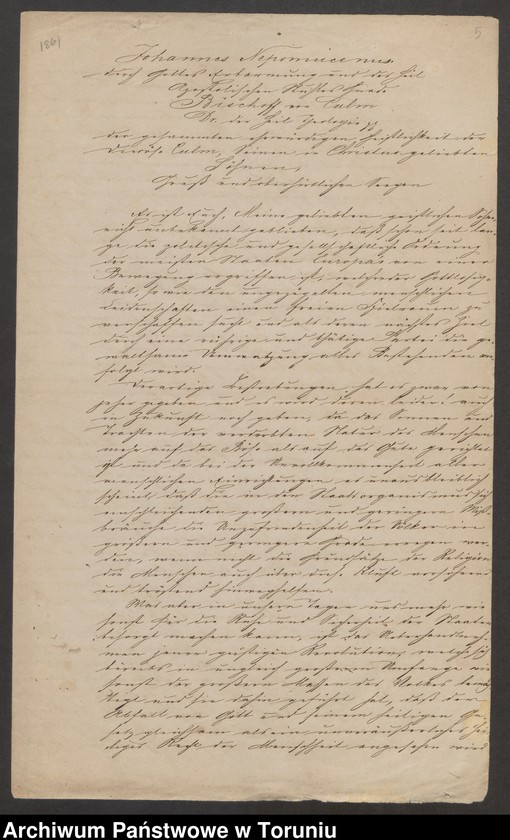 1861
5
Johannes Nepomucenus
durch Gottes Erbarmung und des heil
Apostolischen Stuhles Gnade
Bischoff von Culm
Dr. der heil Theologie
der gesammten ehrwürdigen Geistlichkeit der
Diöcöse Culm, Seinen in Christus geliebten
Söhnen,
Gruß und oberhirtlichen Seegen
Es ist Euch, Meine geliebten geistlichen Söhne,
nicht unbekannt geblieben, daß schon seit lan-
ge die politische und gesellschaftliche Ordnung
der meisten Staaten Europas von einer
Bewegung ergriffen ist, welche der Gottlosig-
keit, so wie den ungezügelten menschlichen
Leidenschaften einen freien Spielraum zu
verschaffen sucht und als deren nächstes Ziel
durch eine rührige und thätige Partei die ge-
waltsame Umwälzung alles Bestehenden ver-
folgt wird.
Derartige Bestrebungen hat es zwar von
jeher gegeben und es wird deren leider auch
in Zukunft noch geben, da das Sinnen und
Trachten der verderbten Natur des Menschen
mehr auf das Böse als auf das Gute gerichtet
ist und da bei der Unvollkommenheit aller
menschlichen Einrichtungen es unausbleiblich
scheint, daß die in den Staatsorganismus sich
einschleichenden größern und geringere Miß-
bräuche die Unzufriedenheit der Völker in
größern und geringerm Grade erregen wer-
den, wenn nicht die Grundsätze der Religion
die Menschen auch über diese Kluft versöhnend
und tröstend hinweghelfen.
Was aber in unsern Tagen uns mehr wie
sonst für die Ruhe und Sicherheit der Staaten
besorgt machen kann, ist das Ueberhandneh-
men jener geistigen Revolution, welche sich
bereits in ungleich größerem Umfange wie
sonst der größern Massen des Volkes bemäch-
tigt und sie dahin geführt hat, daß der
Abfall von Gott und seinem heiligen Ge-
setz gleichsam als ein unveräußerliches hei-
liges Recht der Menschheit angesehen wird
Archiwum Państwowe w Toruniu